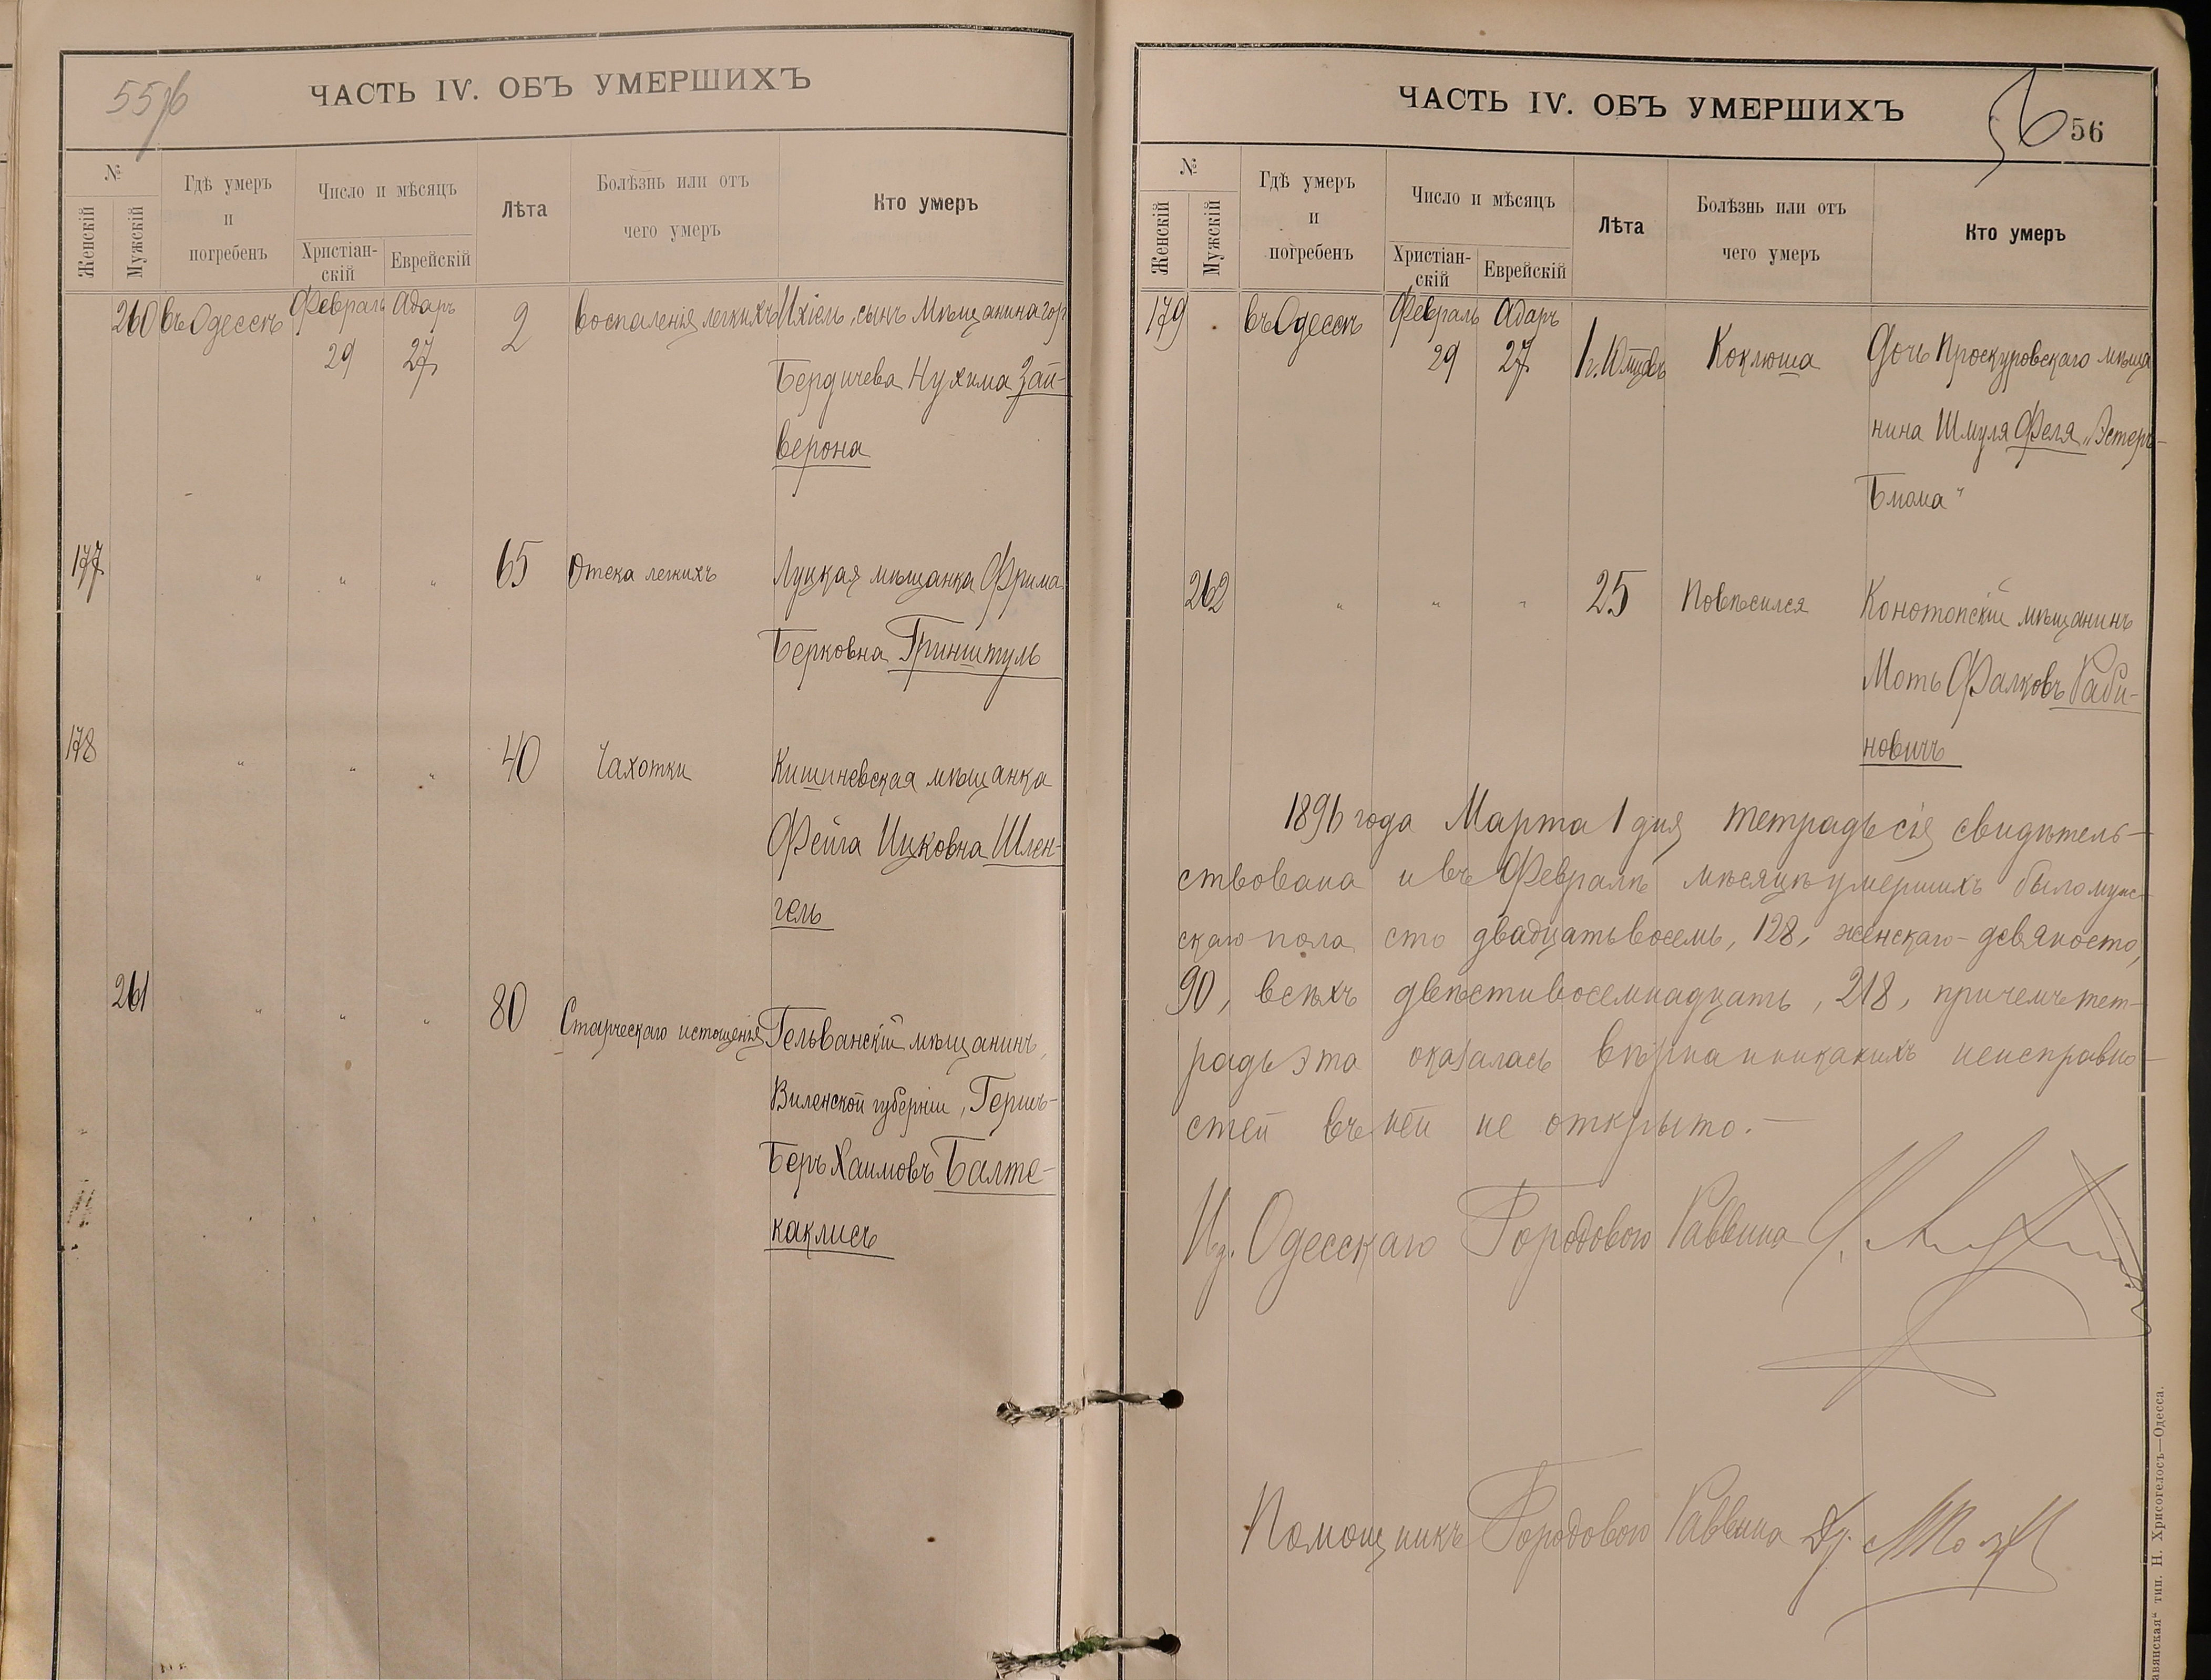 55/56
ЧАСТЬ IV. ОБЪ УМЕРШИХЪ
№
Женскій
Мужскій
Гдѣ умеръ
и
погребенъ
Число и мѣсяцъ
Христіан-
скій
Еврейскій
Лѣта
Болѣзнь или отъ
чего умеръ
Кто умеръ
260 въ Одессѣ Февраль Адаръ 2 воспаленія легкихъ Ихіель, сынъ Мѣщанина гор
29 27 Бердичева Нухима Зай-
верона
177 " " " 65 Отека легкихъ Луцкая мѣщанка Фрима
Берковна Гринштуль
178 " " " 40 Чахотки Кишиневская мѣщанка
Фейга Ицковна Шлен-
гель
261 " " " 80 Старческаго истощенія Гельванскій мѣщанинъ,
Виленской губерніи, Гершъ-
Беръ Хаимовъ Балте-
каклисъ
ЧАСТЬ IV. ОБЪ УМЕРШИХЪ
56 56
№
Женскій
Мужскій
Гдѣ умеръ
и
погребенъ
Число и мѣсяцъ
Христіан-
скій
Еврейскій
Лѣта
Болѣзнь или отъ
чего умеръ
Кто умеръ
179 въ Одессѣ Февраль Адаръ
29 27 Коклюша Дочь Проскуровскаго мѣща
нина Шмуля Феля, "Эстеръ-
Блюма"
262 " " " 25 Повѣсился Конотопскій мѣщанинъ
Моть Фалковъ Раби-
новичъ
1896 года Марта 1 дня тетрадь сія свидѣтель-
ствована и въ Февралѣ мѣсяцѣ умершихъ было муж-
скаго пола сто двадцать восемь, 128, женскаго - девяносто,
90, всѣхъ двѣсти восемнадцать, 218, причемъ тет-
радь эта оказалась вѣрна и никакихъ неисправно-
стей въ ней не открыто. —
Одесскаго Городового Раввина
Помощникъ Городового Раввина Др.
тип. Н. Хрисогелосъ—Одесса.